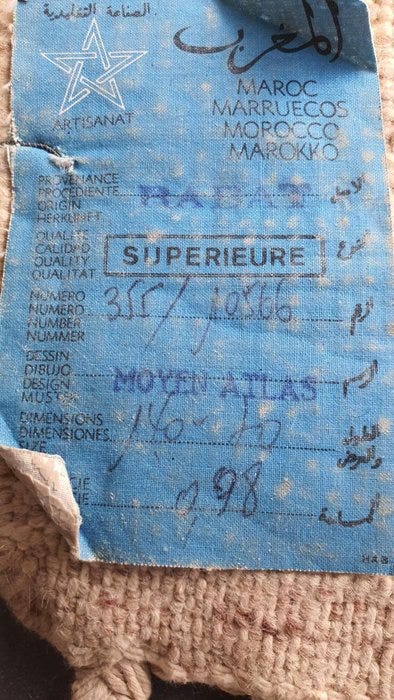 الصناعة التقليدية
ARTISANAT
المغرب
MAROC
MARRUECOS
MOROCCO
MAROKKO
PROVENANCE
PROCEDIENTE
ORIGIN
HERKUNFT
RABAT
الأصل
QUALITE
CALIDAD
QUALITY
QUALITAT
SUPERIEURE
النوع
NUMERO
NUMERO
NUMBER
NUMMER
355/10566
الرقم
DESSIN
DIBUJO
DESIGN
MUSTER
MOYEN ATLAS
الرسم
DIMENSIONS
DIMENSIONES
SIZE
140-70
الطول
والعرض
0,98
المساحة
HAB